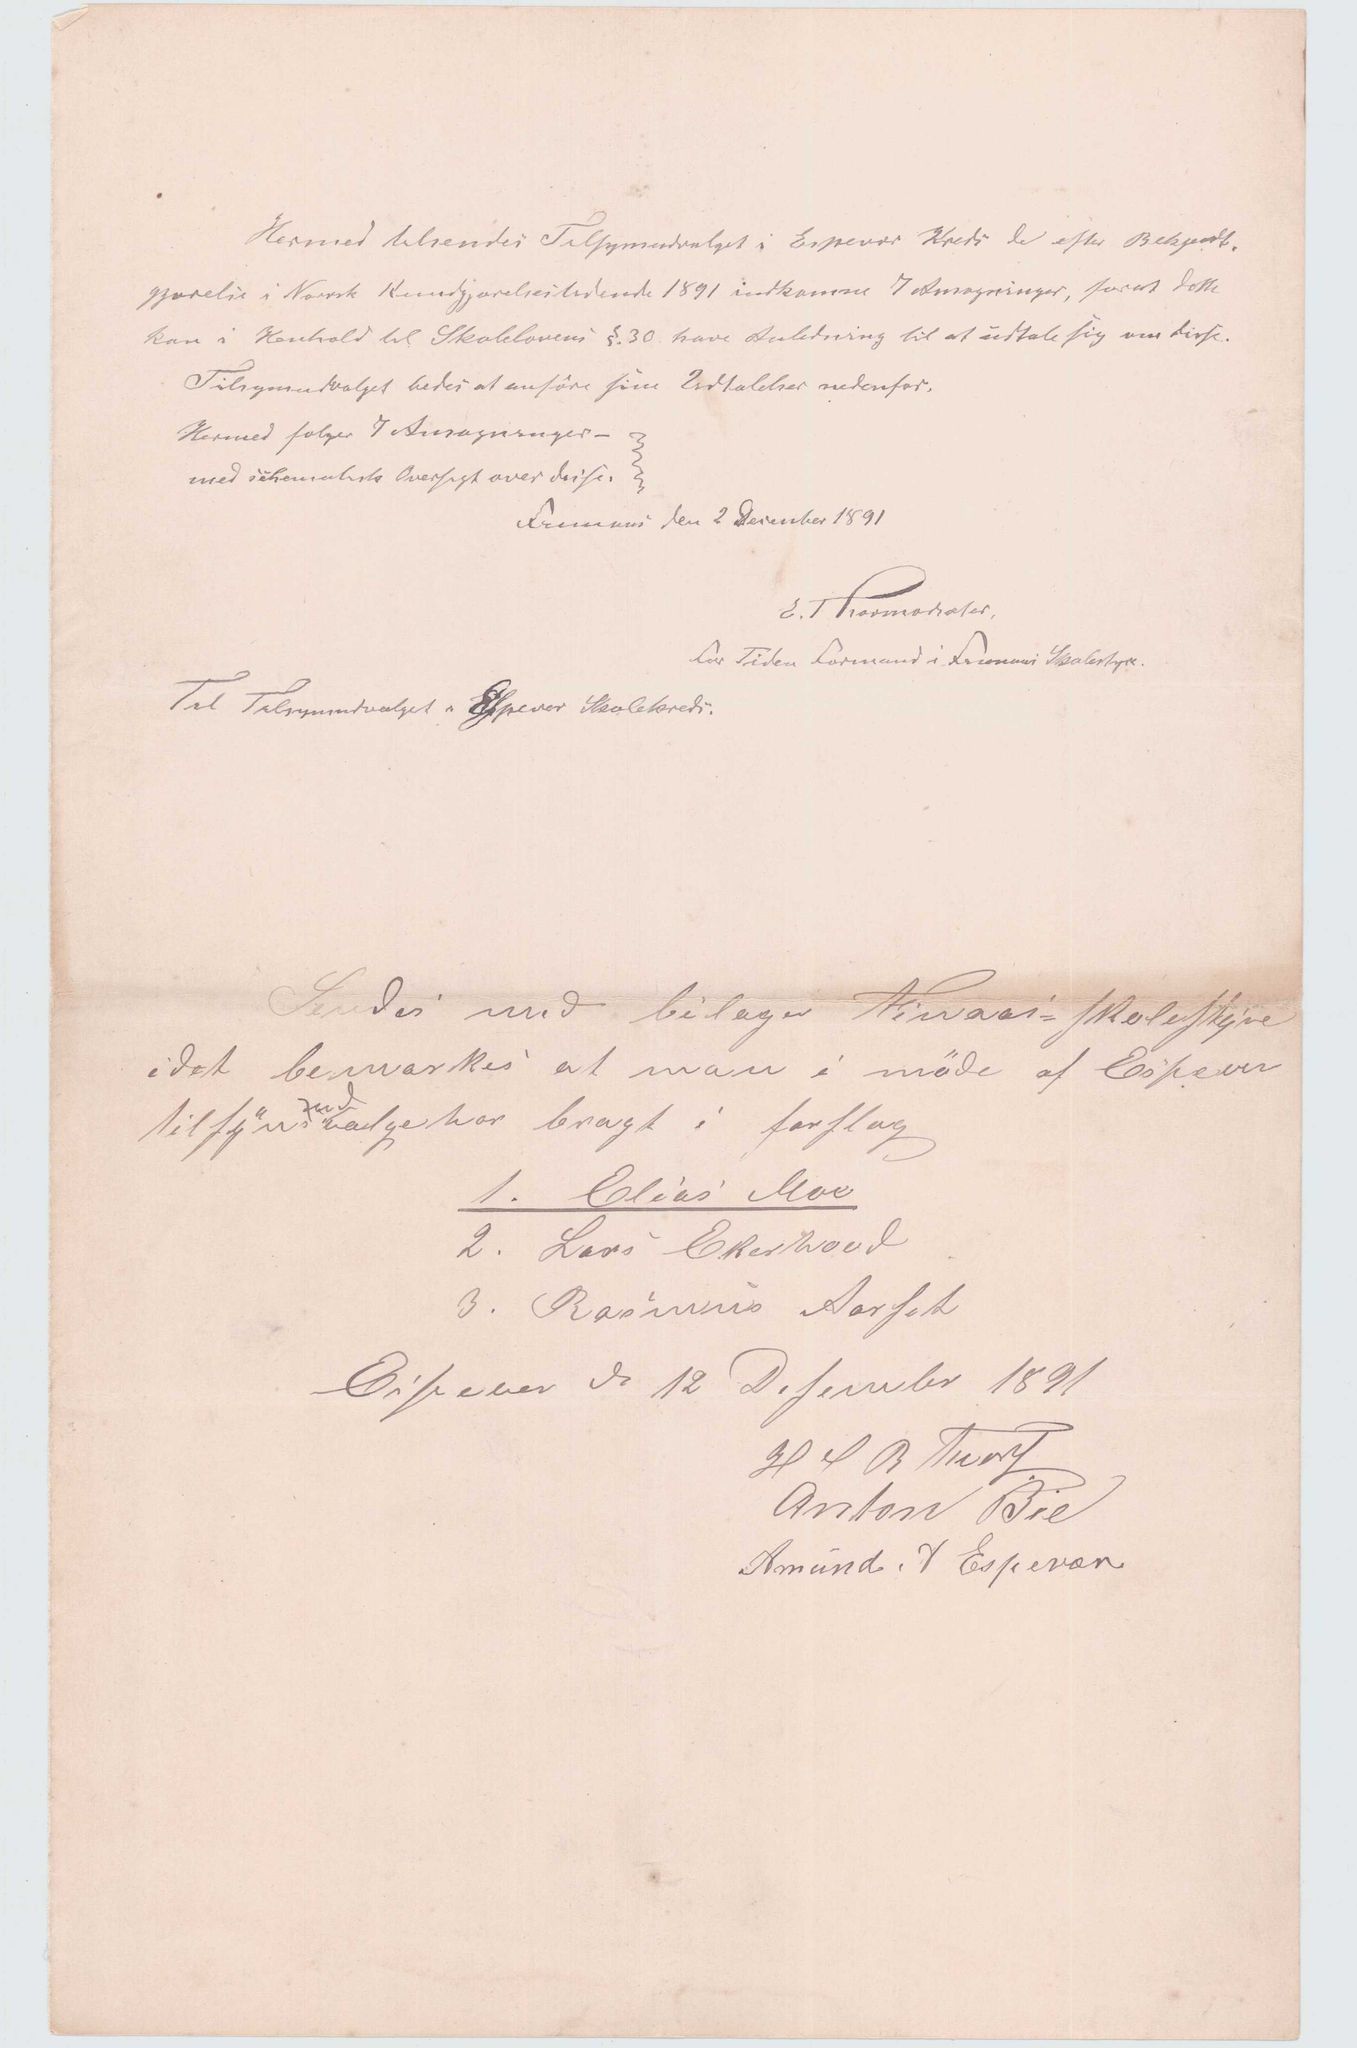 Hermed tilsendes Tilsynsudvalget i Espevær Kreds de efter Bekjendt-
gjørelse i Norsk Kundgjørelsestidende 1891 indkomne 7 Ansøgninger, forat dette
kan i Henhold til Skolelovens §.30 have Anledning til at udtale sig om disse.
Tilsynsudvalget bedes at anføre sine Udtalelser nedenfor.
Hermed følger 7 Ansøgninger –
med schematisk Oversigt over disse.
Finnaas den 2 December 1891
E. Thormodsæter,
For Tiden Formand i Finnaas Skolestyre.
Til Tilsynsudvalget i Espevær Skolekreds.
Sendes med bilager Finnaas= skolestyre
idet bemærkes at man i möde af Espevær
tilsyns udvalge har bragt i forslag
1. Elias Moe
2. Lars Ekerhovd
3. Rasmus Aarset
Espevær d. 12 Desember 1891
H
Anton Bie
Amund. Espevær